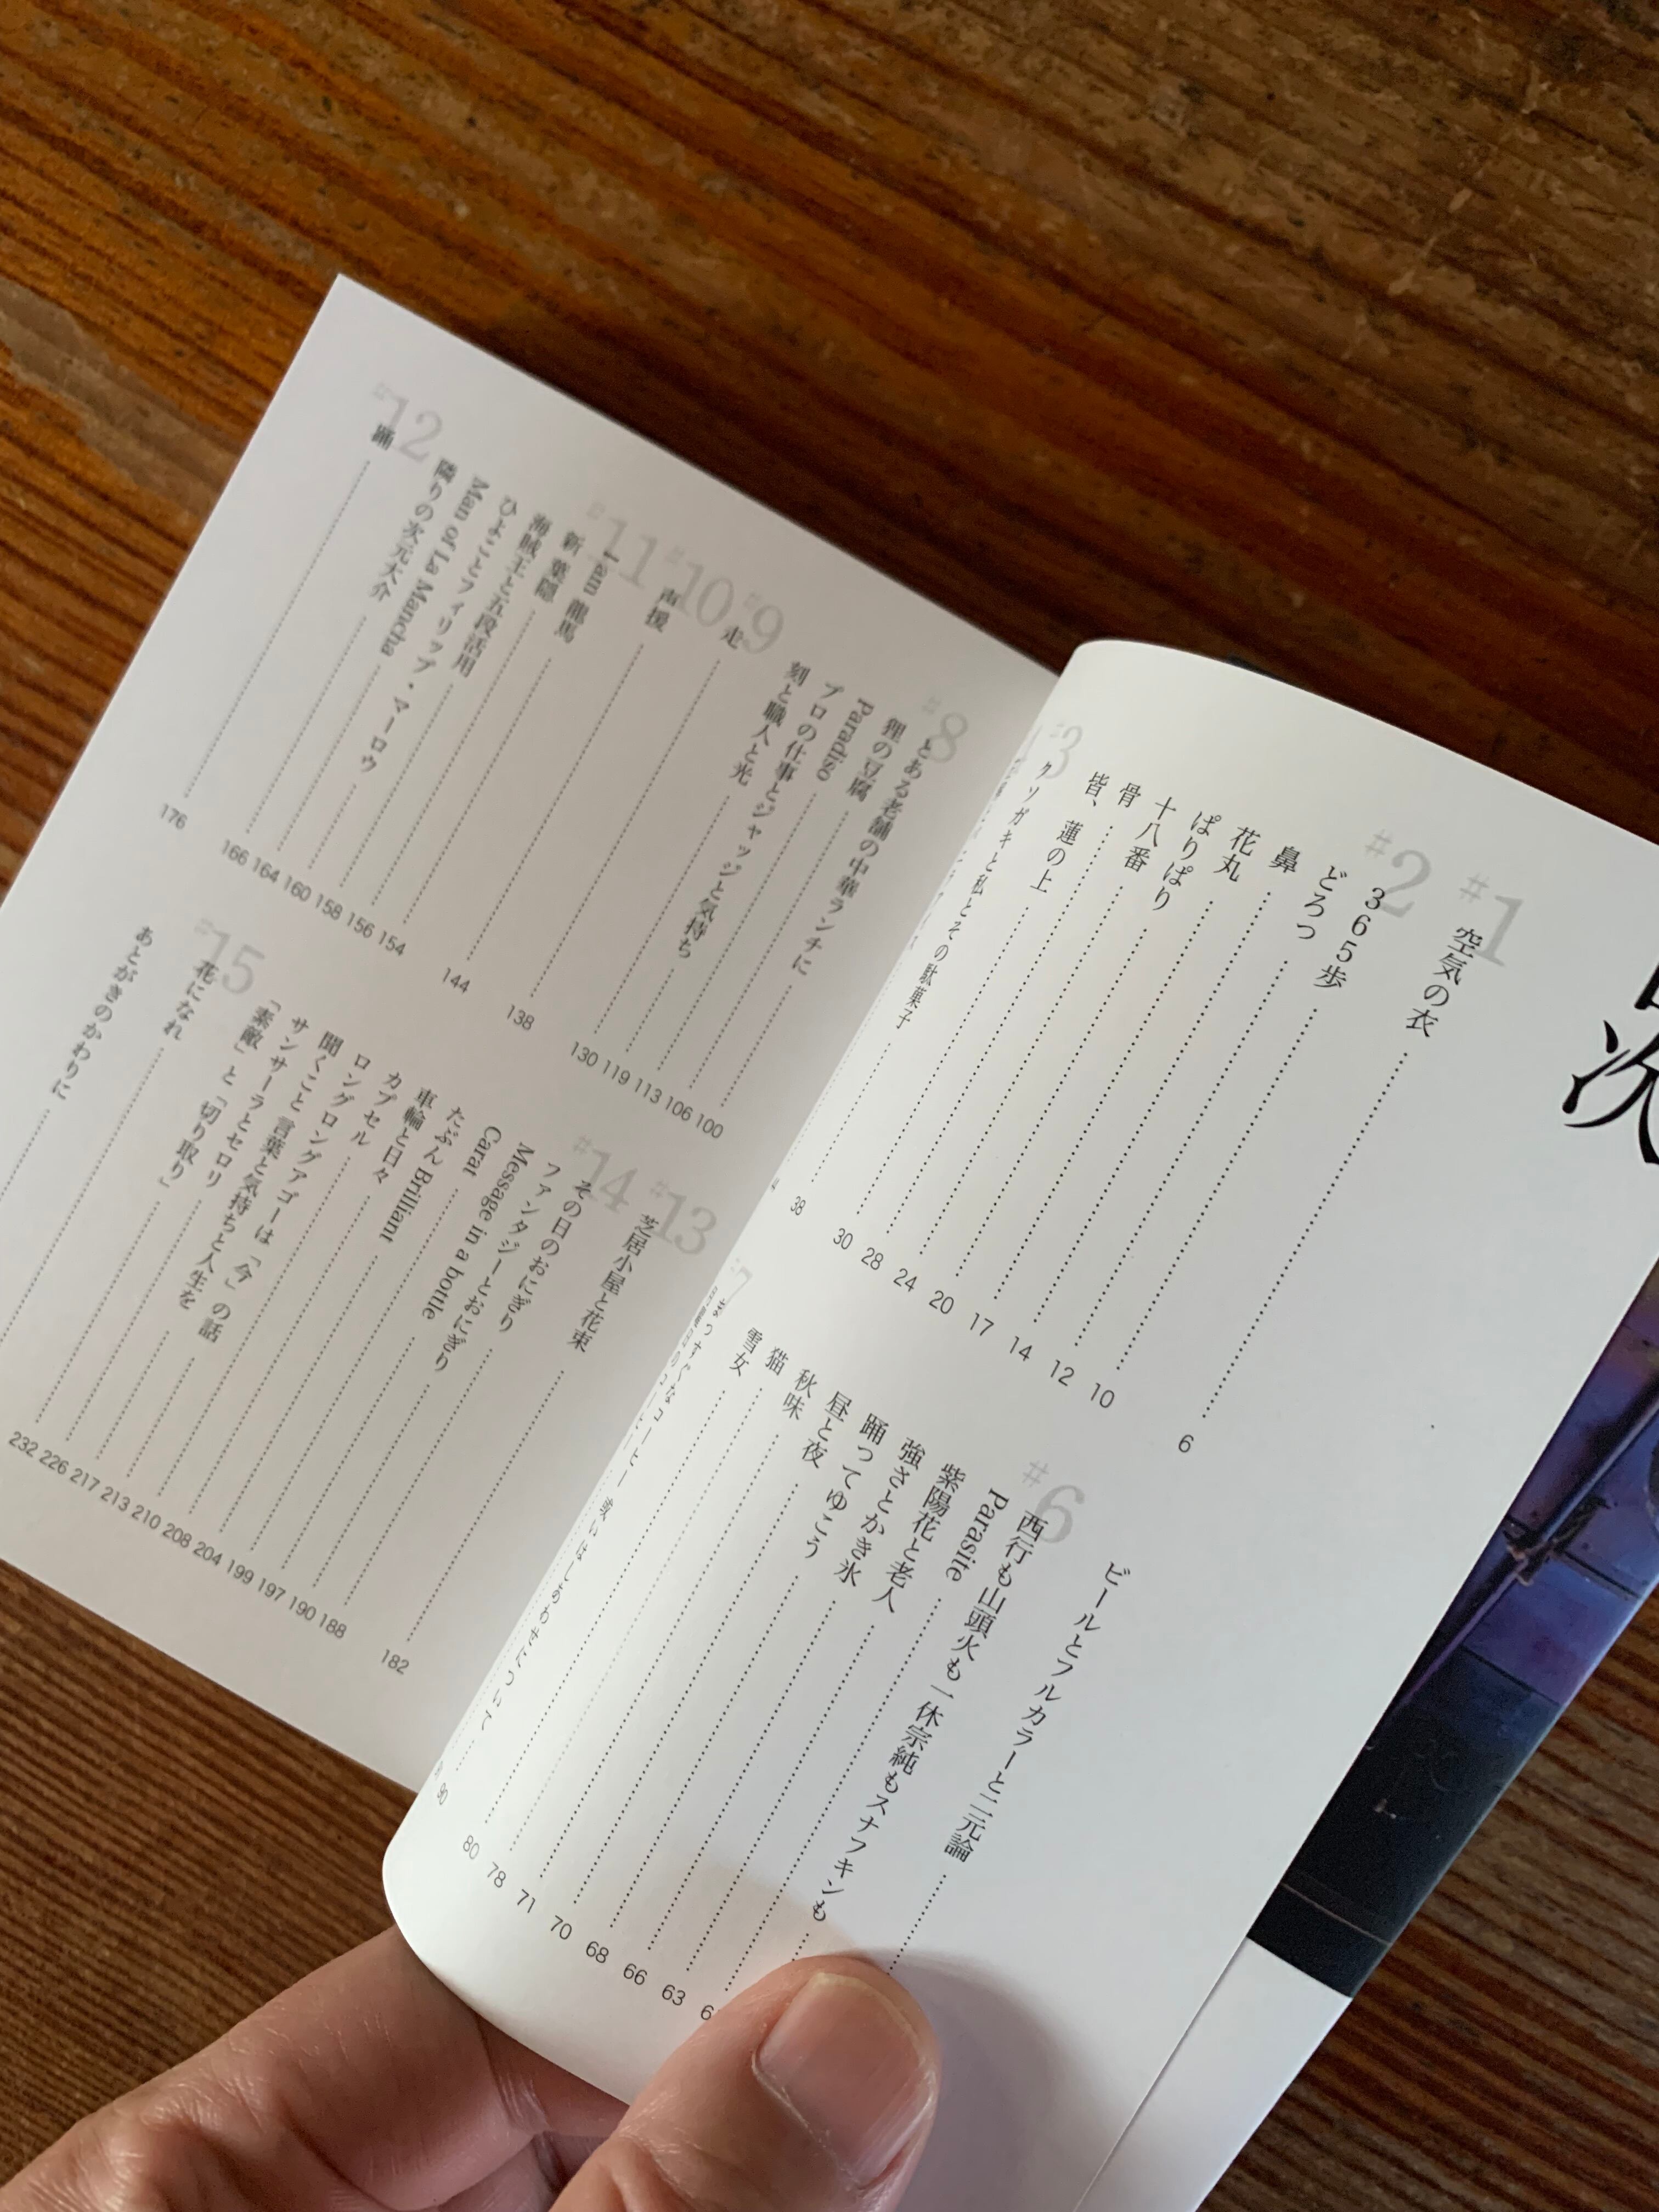 次
#1
空気の衣 6
#2
365歩 10
どろっ 12
鼻 14
花丸 17
ぱりぱり 20
十八番 24
骨 28
皆、蓮の上 30
#3
クソガキと私とその駄菓子 38
ビールとフルカラーと二元論
#6
西行も山頭火も一休宗純もスナフキンも
Parasite
紫陽花と老人 63
強さとかき氷 66
踊ってゆこう 68
昼と夜 70
秋味 71
猫 78
雪女 80
#7
まっすぐなコーヒー 或いはしあわせについて 90
#8
とある老舗の中華ランチに 100
狸の豆腐 106
Paradiso 113
プロの仕事とジャッジと気持ち 119
刻と職人と光 130
#9
走 138
#10
声援 144
#11
I am 龍馬 154
新 葉隠 156
海賊王と五段活用 158
ひよことフィリップ・マーロウ 160
Man of La Mancha 164
隣りの次元大介 166
#12
踊 176
#13
芝居小屋と花束 182
#14
その日のおにぎり 188
ファンタジーとおにぎり 190
Message in a bottle 197
Carat 199
たぶん Brilliant 204
車輪と日々 208
カプセル 210
ロングロングアゴーは「今」の話 213
聞くこと 言葉と気持ちと人生を 217
サンサーラとセロリ 226
「素敵」と「切り取り」 232
#15
花になれ
あとがきのかわりに